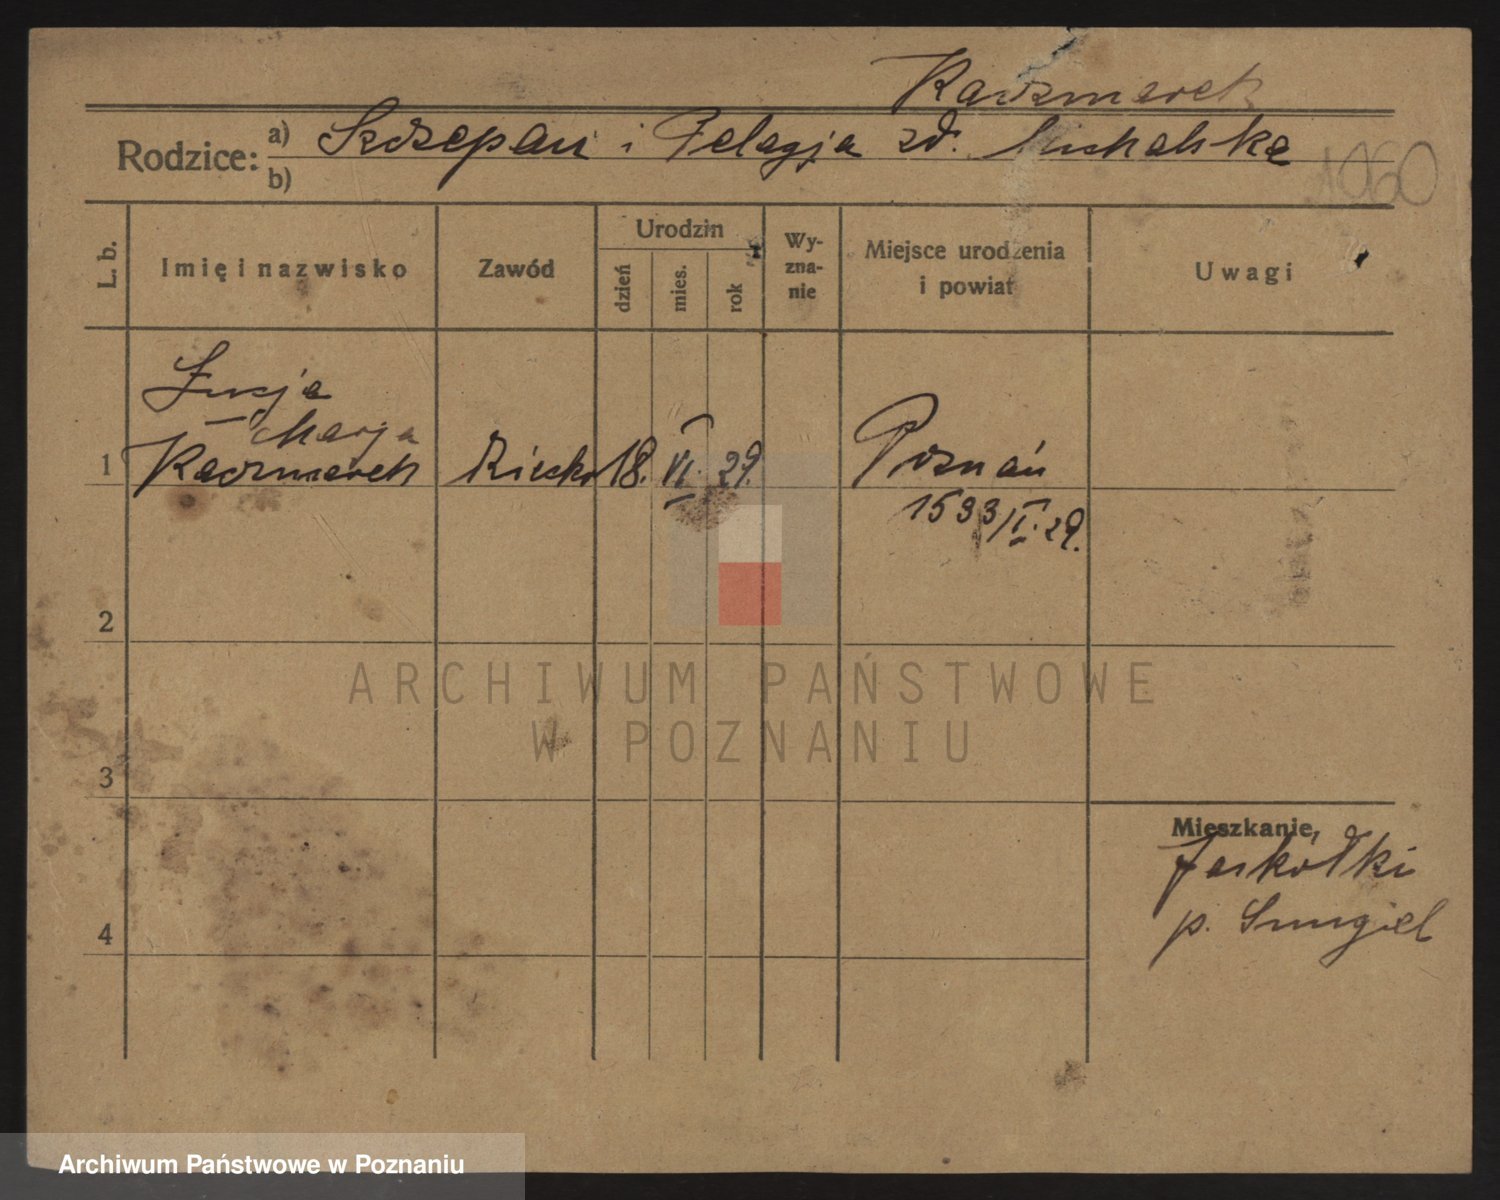 Kaczmarek
Rodzice:
a) Szczepan i Pelagja zd. Michalska
b)
1060
L. b.
Imię i nazwisko
Zawód
Urodzin
dzień
mies.
rok
Wy-
zna-
nie
Miejsce urodzenia
i powiat
Uwagi
Łucja
Marja
1 Kaczmarek 18. VI. 29. Poznań
1533/I. 29.
2
3
4
Mieszkanie,
Jaskółki
p. Śmigiel
ARCHIWUM PAŃSTWOWE
W POZNANIU
Archiwum Państwowe w Poznaniu